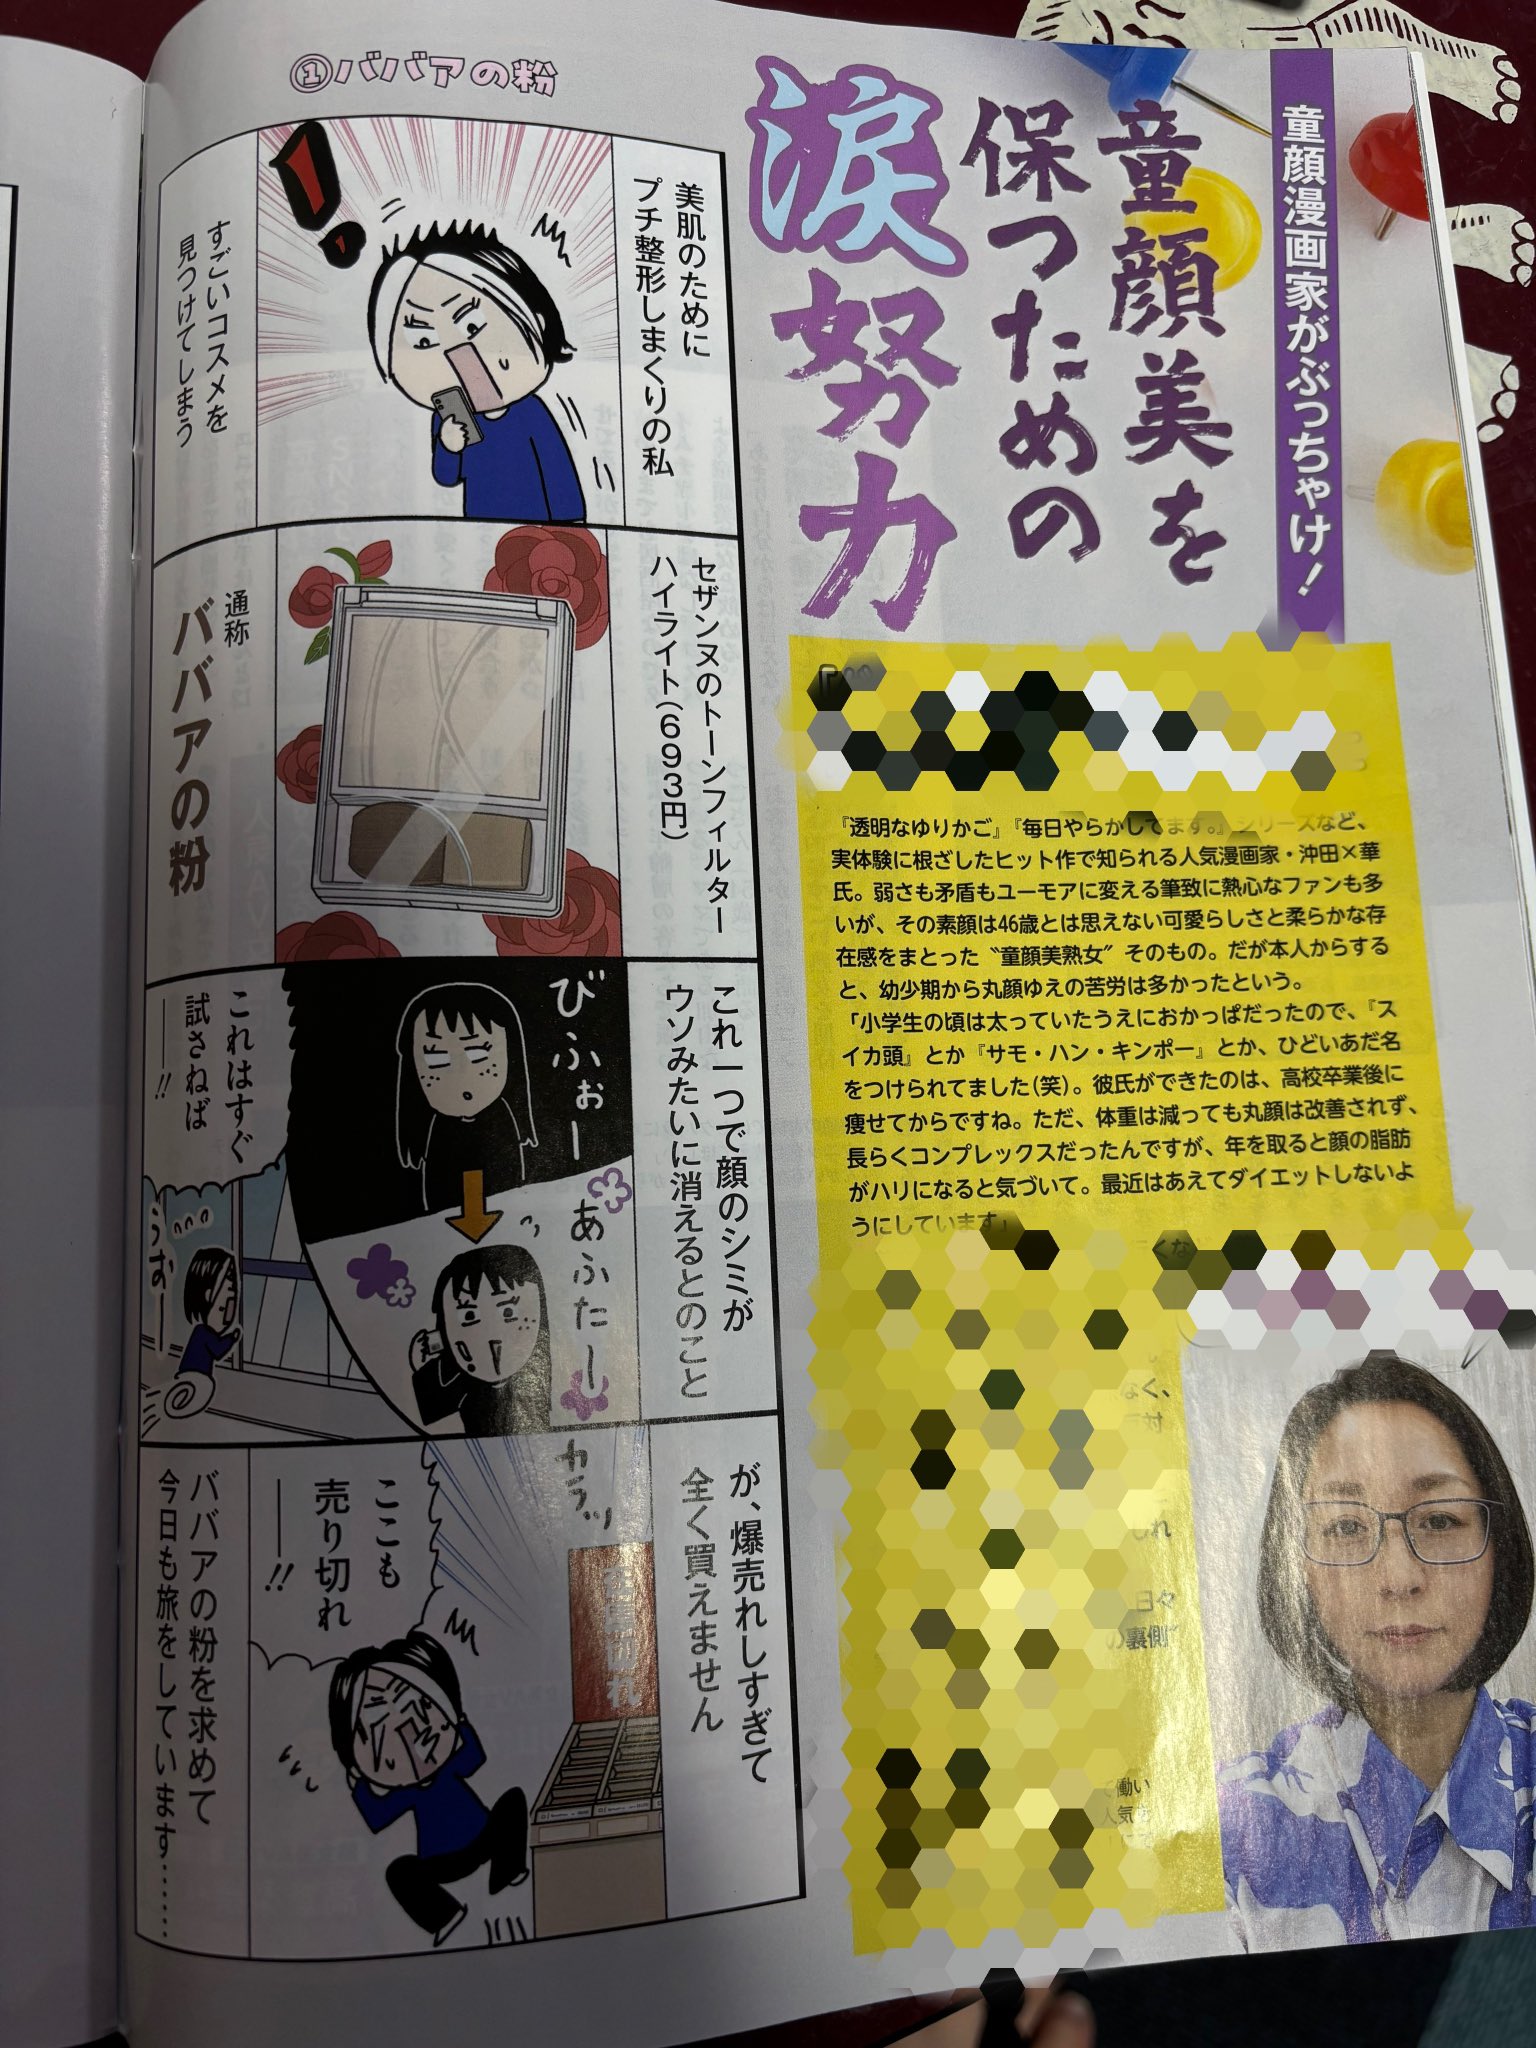 童顔漫画家がぶっちゃけ！
童顔美を
保つための
涙努力
『透明なゆりかご』『毎日やらかしてます。』シリーズなど、
実体験に根ざしたヒット作で知られる人気漫画家・沖田×華
氏。弱さも矛盾もユーモアに変える筆致に熱心なファンも多
いが、その素顔は46歳とは思えない可愛らしさと柔らかな存
在感をまとった〝童顔美熟女〟そのもの。だが本人からする
と、幼少期から丸顔ゆえの苦労は多かったという。
「小学生の頃は太っていたうえにおかっぱだったので、『ス
イカ頭』とか『サモ・ハン・キンポー』とか、ひどいあだ名
をつけられてました（笑）。彼氏ができたのは、高校卒業後に
痩せてからですね。ただ、体重は減っても丸顔は改善されず、
長らくコンプレックスだったんですが、年を取ると顔の脂肪
がハリになると気づいて。最近はあえてダイエットしないよ
うにしています」
なく、
日々
の裏側
て働い
人気を
①ババアの粉
美肌のために
プチ整形しまくりの私
！
すごいコスメを
見つけてしまう
セザンヌのトーンフィルター
ハイライト（６９３円）
通称
ババアの粉
これ一つで顔のシミが
ウソみたいに消えるとのこと
びふぉー
あふたー
これはすぐ
試さねば
――!!
うおー
が、爆売れしすぎて
全く買えません
カラッ
在庫切れ
ここも
売り切れ
――!!
ババアの粉を求めて
今日も旅をしています……